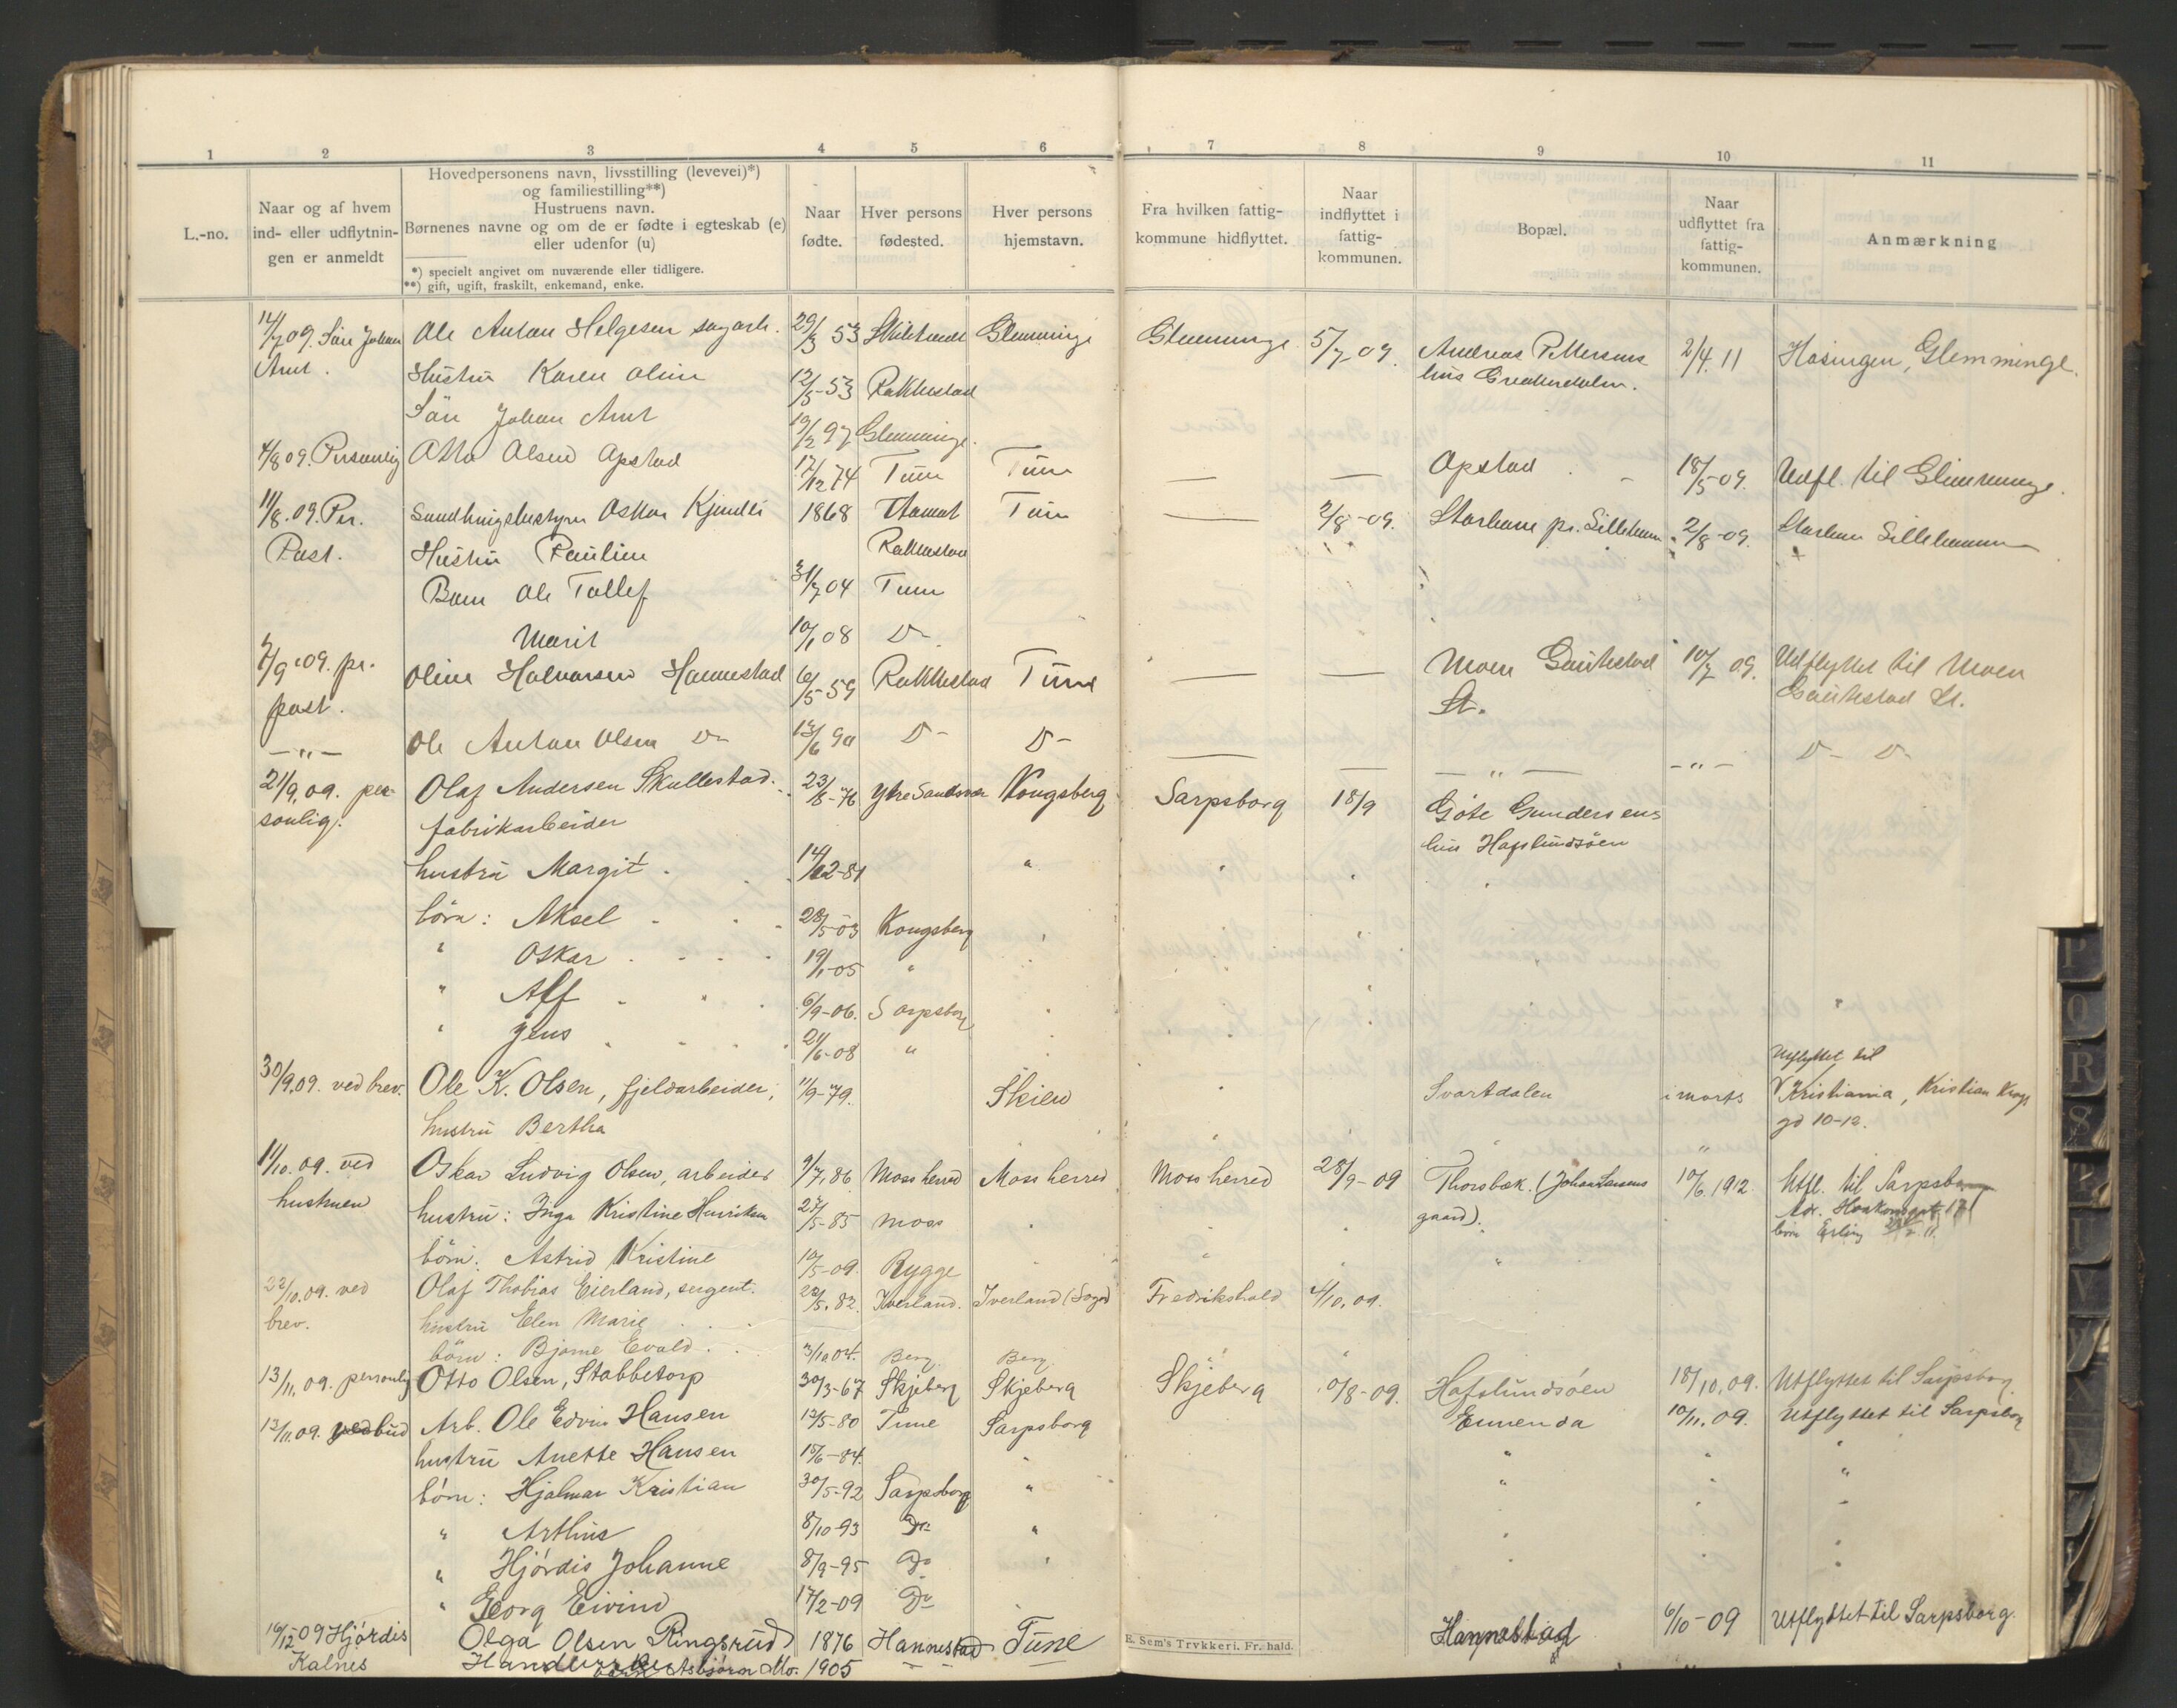 1 2 3 4 5 6 7 8 9 10 11
L.-no.
Naar og af hvem
ind- eller udflytnin-
gen er anmeldt
Hovedpersonens navn, livsstilling (levevei)*)
og familiestilling**)
Hustruens navn.
Børnenes navne og om de er fødte i egteskab (e)
eller udenfor (u)
*) specielt angivet om nuværende eller tidligere.
**) gift, ugift, fraskilt, enkemand, enke.
Naar
fødte.
Hver persons
fødested.
Hver persons
hjemstavn.
Fra hvilken fattig-
kommune hidflyttet.
Naar
indflyttet i
fattig-
kommunen.
Bopæl.
Naar
udflyttet fra
fattig-
kommunen.
Anmærkning
14/7 09. Sön Johan Ole Anton Helgesen sagarb. 29/3 53 Glemminge Glemminge 5/7 09. Andreas Pettersens 2/4. 11 Glemminge.
Arnt. Hustru Karen Oline 12/5-53 Rakkestad hus
Sön Johan Arnt 19/2 97 Glemminge.
4/8 09. Personlig Otto Olsen Opstad 17/12 74 Tune Tune — — Opstad 18/5-09. Udfl. til Glemminge.
11/8. 09. Pr. Oskar 1868 Tune — 2/8-09. pr. Lilleham. 2/8-09. Lillehammer
Post. Hustru Pauline Rakkestad
Barn Ole Tollef 31/7 04 Tune
Marit 10/1 08 D-
7/9 09. pr. Oline Halvorsen Hannestad 6/5-59 Rakkestad Tune — — Moen Gautestad 10/7 09. Udflyttet til Moen
post. St. Gautestad St.
— " — Ole Anton Olsen D- 13/6 90 D- D- — — — " — - " - D- D-
21/9, 09. per- Olaf Andersen Skullestad. 23/8-76 Ytre Sandsvær Kongsberg Sarpsborg 18/9 Göte Gundersens
sonlig. fabrikarbeider hus Hafslundsöen
hustru Margit. 14/12-81 "
börn: Aksel 28/5-03 Kongsberg
" Oskar 19/1-05 "
" Alf 6/9-06. Sarpsborg
" Jens 21/6-08 "
Utflyttet til
30/9, 09. ved brev. Ole K. Olsen, fjeldarbeider, 11/9-79. Skien Svartdalen i marts Kristiania, Kristian Krogs
hustru Bertha gd 10-12.
11/10. 09. ved Oskar Ludvig Olsen, arbeider 9/7, 86 Moss herred Moss herred Moss herred 28/9-09 Thorsbæk. (Johan Larsens 10/6. 1912. Utfl. til Sarpsborg
hustruen hustru: Inga Kristine Henriksen 27/5-85 Moss gaard). Adr. Haakonsgt. 17
börn: Astrid Kristine 10/5-09. Rygge börn Erling
22/10. 09. ved Olaf Thobias Eierland, sergent. 22/5, 82. Iverland. Iverland (Sogn) Fredrikshald 4/10, 09.
brev. hustru Elen Marie
börn: Bjarne Evald. 3/10 04. Berg. Berg.
13/11, 09. personlig Otto Olsen, Stabbetorp 30/3-67 Skjeberg Skjeberg Skjeberg 0/8-09. Hafslundsöen 18/10, 09. Utflyttet til Sarpsborg.
13/11. 09. ved bud Arb. Ole Edvin Hansen 12/5-80 Tune Sarpsborg Ennenda 10/11, 09. Utflyttet til Sarpsborg
hustru Anette Hansen 15/6-84. " " " "
börn: Hjalmar Kristian 30/5-92 Sarpsborg " " " "
" Arthur 8/10-93 Do "
" Hjördis Johanne 8/9-95 Do "
" Georg Eivind 17/2-09 Do
16/12 09 Hjördis Olga Olsen Ringsrud 1876 Hannestad Tune Hannestad 6/10-09 Utflyttet til Sarpsborg.
Kalnes Asbjörn 1905 — —
E. Sem's Trykkeri. Fr. hald.
P
Q
R
S
T
V